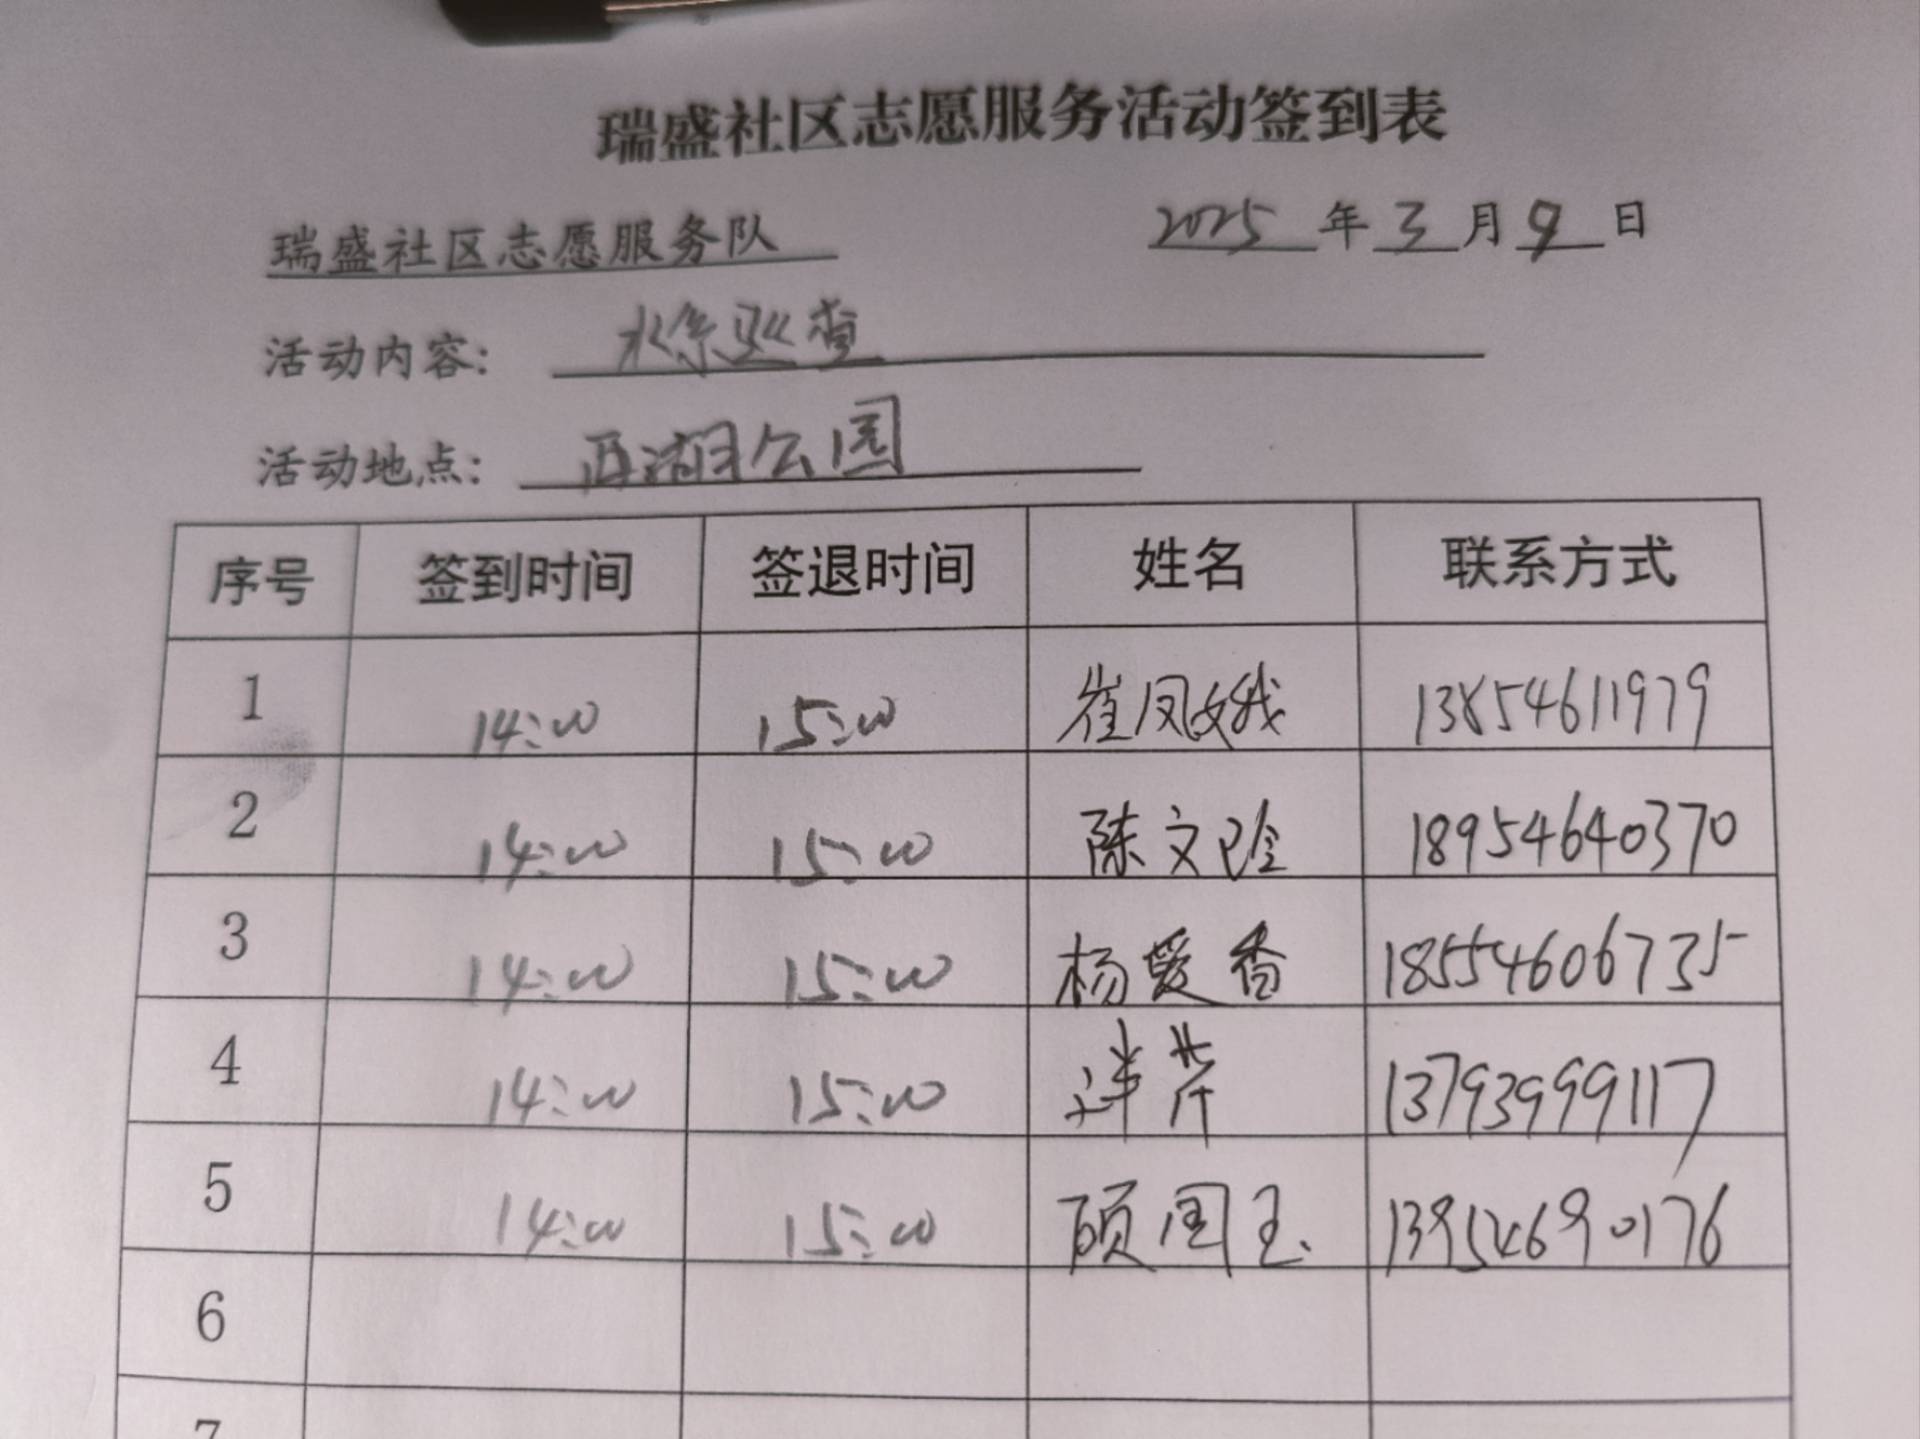 瑞盛社区志愿服务活动签到表
瑞盛社区志愿服务队 2025年3月9日
活动内容: 水系巡查
活动地点: 西湖公园
序号 签到时间 签退时间 姓名 联系方式
1 14:00 15:00 崔凤娥 13854611979
2 14:00 15:00 陈文 18954640370
3 14:00 15:00 杨爱香 18554606735
4 14:00 15:00 芹 13793999117
5 14:00 15:00 顾国玉 13954690176
6
7